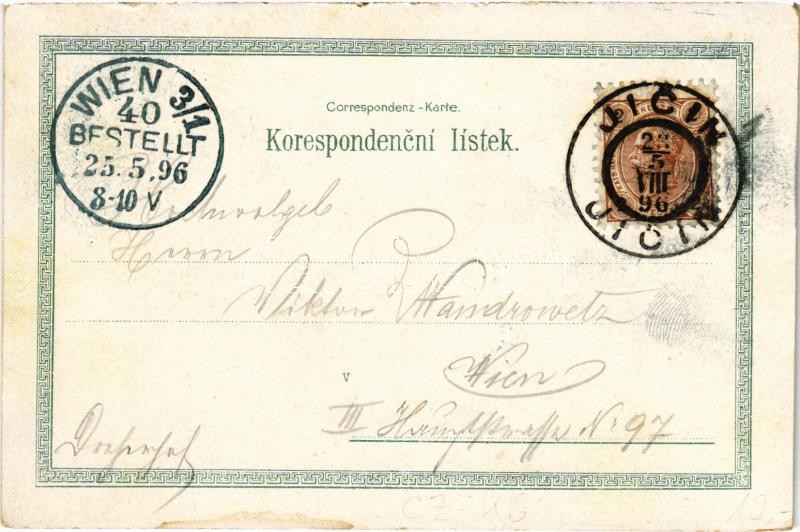 WIEN 3/1
40
BESTELLT
25.5.96
8-10 V
Correspondenz-Karte.
Korespondenční lístek.
JIČIN
23
5
VIII
96
JIČIN
Hochwolgeb
Herrn
Viktor Wandrowetz
v
Wien
III Hauptstrasse No 97
Dreherhof
CZ 16
19-